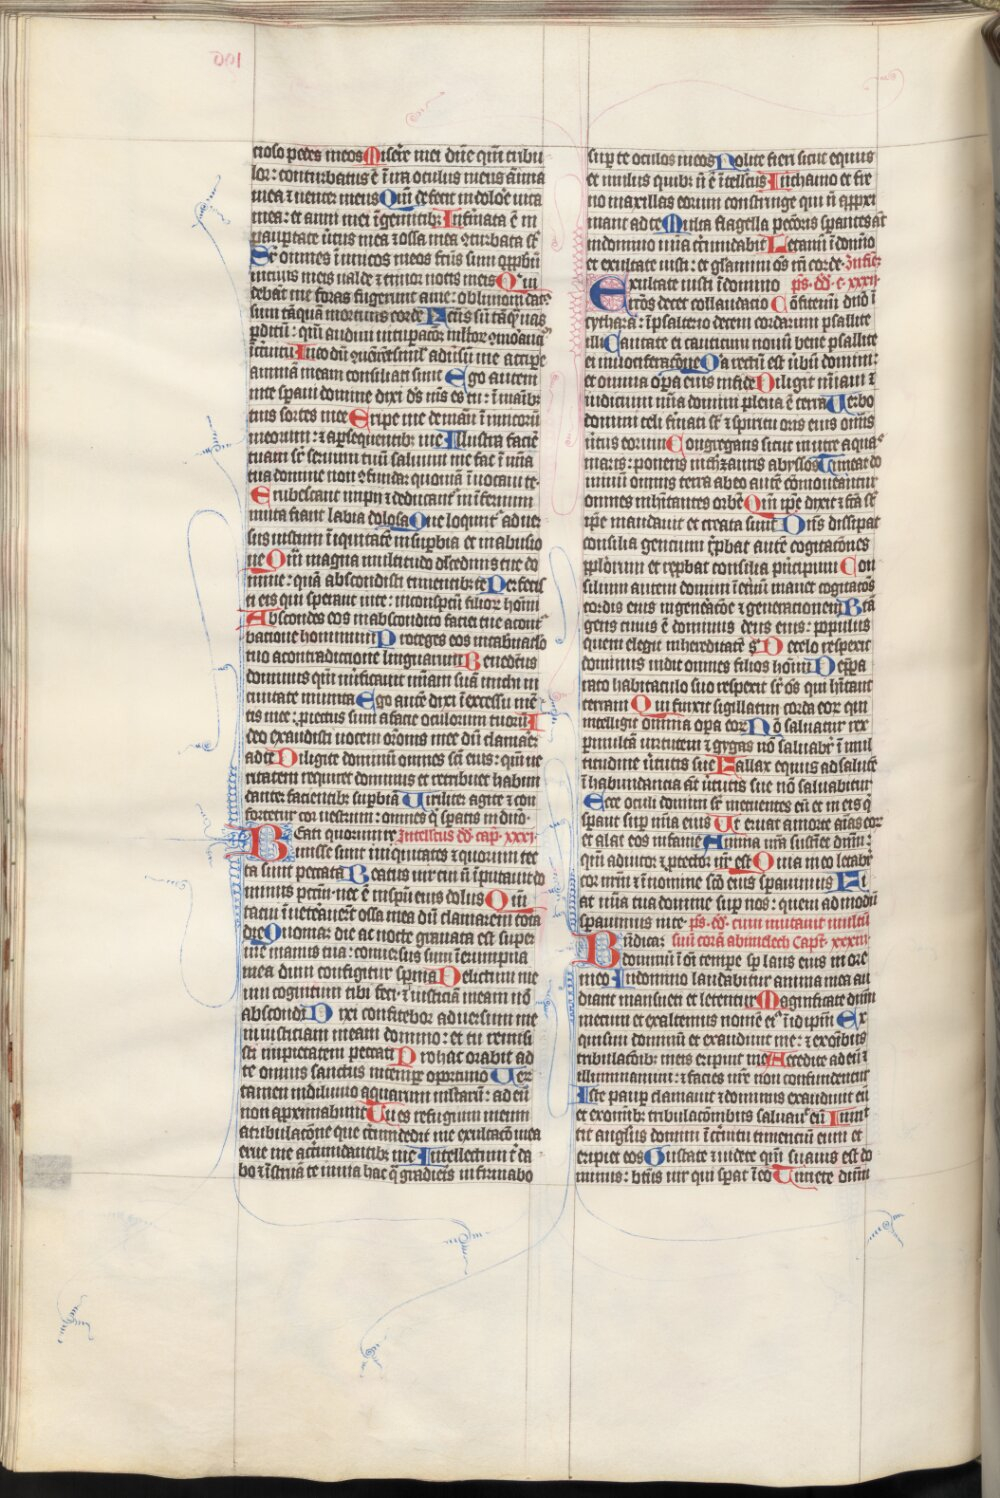 cioso pedes meos Misere mei dñe qm̃ tribu
lor: conturbatus ẽ ĩ ira oculus meus aĩma
mea ⁊ uenter meus Qm̃ defecit in dolore uita
mea: et anni mei ĩ gemitibꝫ Infirmata ẽ in
paupertate uirtus mea ⁊ ossa mea ꝯturbata sũt
Sr̃ omnes inimicos meos factus sum opprobriũ
uicinis meis ualde ⁊ timor notis meis Qui
debãt me foras fugerunt a me: obliuioni datꝰ
sum tãquã mortuus corde Factus sũ tãq̃ uas
perditũ: qm̃ audiui uituperacõꝫ multoꝝ ꝯmorãciũ
ĩ circuitu In eo dũ ꝯueniret simul aduersũ me accipe
animã meam consiliati sunt Ego autem
in te speraui domine dixi dẽs meus es tu: ĩ manibꝫ
tuis sortes mee Eripe me de manũ ĩmicorũ
meorum: ⁊ a persequentibꝫ me Illustra faciẽ
tuam sr̃ seruum tuũ saluum me fac ĩ mĩa
tua domine non ꝯfundar quoniã ĩuocaui te
Erubescant impii ⁊ deducantr̃ in ĩfernum
muta fiant labia dolosa Que loquuntr̃ aduer
sus iustum ĩiquitatẽ in superbia et in abusio
ne Qm̃ magna multitudo dulcedinis tue do
mine: quã abscondisti timentibꝫ te Perfecis
ti eis qui sperant in te: in conspectũ filioꝝ hõĩm
Abscondes eos in abscondito faciei tue a contr
bacione hominum Proteges eos in tabnaclo
tuo a contradictione linguarum Benedictus
dominus qm̃ mirificauit mĩam suã michi in
ciuitate munita Ego autẽ dixi ĩ excessu mẽ
tis mee: proiectus sum a facie oculorum tuorũ I
deo exaudisti uocem orõnis mee dũ clamarẽ
ad te Diligite dominũ omnes scĩ eius: qm̃ ue
ritatem requiret dominus et retribuet habun
danter facientibꝫ superbiã Uiriliter agite ⁊ con
fortetur cor uestrum: omnes q̃ speratis in dño
Beati quorum re Intellectus dd̃ cap̃ xxxi
misse sunt iniquitates ⁊ quorum tec
ta sunt peccata Beatus uir cui nõ ĩputauit do
minus pctm̃: nec ẽ in spũ eius dolus Qm̃
tacui ĩueterauerũt ossa mea dũ clamarem tota
die Quoniam die ac nocte grauata est super
me manus tua: conuersus sum ĩ erumpna
mea dum configitur spina Delictum me
um cognitum tibi feci: ⁊ iusticiã meam nõ
abscondi Dixi confitebor aduersum me
iniusticiam meam domino: et tu remisi
sti impietatem peccati Pro hac orabit ad
te omnis sanctus in tempore oportuno Uer
tamen in diluuio aquarum multarũ: ad eũ
non aproximabunt Tu es refugium meum
a tribulacõne que circumdedit me exultacõ mea
erue me a circumdantibꝫ me Intellectum t̃ da
bo ⁊ ĩstruã te in uia hac q̃ gradieris infirmabo
super te oculos meos Nolite fieri sicut equus
et mulus quibꝫ nõ ẽ ĩtellectus In chamo et fre
no maxillas eorum constringe qui nõ approxi
mant ad te Multa flagella pctõris sperantes aũt
in domino mĩa circũdabit Letamĩ ĩ domĩo
et exultate iusti: et gloriamĩ oẽs recti corde In finẽ
Exultate iusti ĩ domino ps. dd̃. c. xxxii
rectos decet collaudacio Confitemĩ dño ĩ
cythara: ĩ psalterio decem cordarum psallite
illi Cantate ei canticum nouũ bene psallite
ei in uociferacõne Quia rectũ est uerbũ domini:
et omnia opera eius in fide Diligit mĩam ⁊
iudicium mĩa domini plena ẽ terra Uerbo
domini celi firmati st̃ ⁊ spiritu oris eius omĩs
uirtus eorum Congregans sicut in utre aquas
maris: ponens in thezauris abyssos Timeat do
minũ omnis terra ab eo autẽ cõmoueantur
omnes inhitantes orbẽ Qm̃ ipẽ dixit ⁊ fcã st̃
ipẽ mandauit et creata sunt Dñs dissipat
consilia gencium reprobat autẽ cogitacõnes
pplõrum et reprobat consilia principum Con
silium autem domini ĩ eternũ manet cogitacõs
cordis eius in generacõe ⁊ generationem Bta
gens cuius ẽ dominus deus eius: populus
quem elegit in hereditatẽ s̃ De celo respexit
dominus uidit omnes filios hõĩm De prepa
rato habitaculo suo respexit sr̃ oẽs qui hĩtant
terram Qui finxit sigillatim corda eoꝝ qui
intelligit omnia opa eoꝝ Nõ saluatur rex
per multã uirtutem ⁊ gygas nõ saluabitr̃ ĩ mul
titudine uirtutis sue Fallax equus ad salutẽ
ĩ habundancia aũt uirtutis sue nõ saluabitur
Ecce oculi domini sr̃ metuentes eũ et in eis q̃
sperant sup mĩa eius Ut eruat a morte aĩas eoꝝ
et alat eos in fame Anima nr̃a sustinet dñm:
qm̃ adiutor ⁊ protector nr̃ est Quia in eo letabr̃
cor nr̃m ⁊ ĩ nomine scõ eius sperauimus Fi
at mĩa tua domine sup nos: quem ad modũ
sperauimus in te ps. dd̃. cum mutauit uultũ
Bñdicam suũ corã abimelech Capt̃ xxxiii
dominũ ĩ oĩ tempe sp̃ laus eius in ore
meo In domino laudabitur anima mea au
diant mansueti et letentur Magnificate dñm
mecum et exaltemus nomẽ eiꝰ ĩ idipm̃ Ex
quisiui dominũ et exaudiuit me: ⁊ ex oĩbus
tribulacõibꝫ meis eripuit me Accedite ad eũ ⁊
illuminamini: ⁊ facies ur̃e non confundentur
Iste paup clamauit ⁊ dominus exaudiuit eũ
et ex omĩbꝫ tribulacõnibus saluauit eũ Inmit
tit anglus domini ĩ circuitu timenciũ eum et
eripiet eos Gustate ⁊ uidete qm̃ suauis est do
minus: btũs uir qui sperat ĩ eo Timete dñm